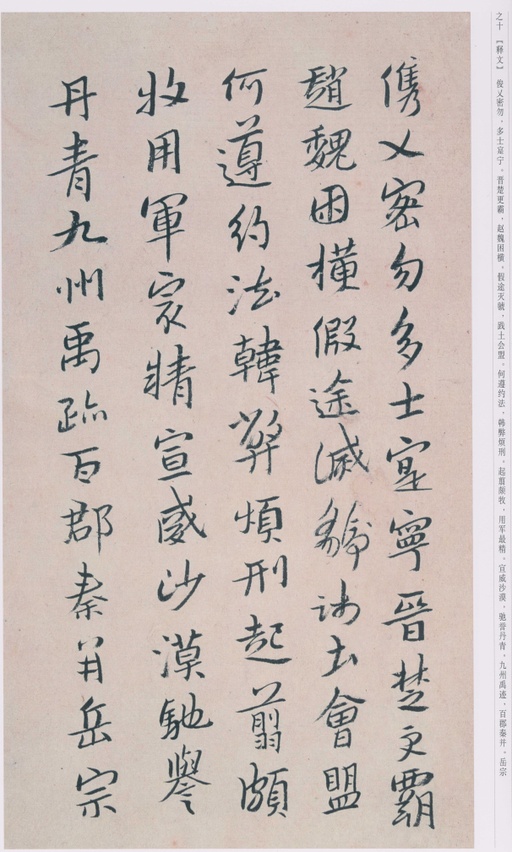 之十 【释文】 俊乂密勿，多士寔宁。晋楚更霸，赵魏困横。假途灭虢，践土会盟。何遵约法，韩弊烦刑。起翦颇牧，用军最精。宣威沙漠，驰誉丹青。九州禹迹，百郡秦并。岳宗
儁乂密勿多士寔寧晉楚更霸
趙魏困橫假途滅虢踐土會盟
何遵約法韓弊煩刑起翦頗
牧用軍㝡精宣威沙漠馳譽
丹青九州禹跡百郡秦并岳宗